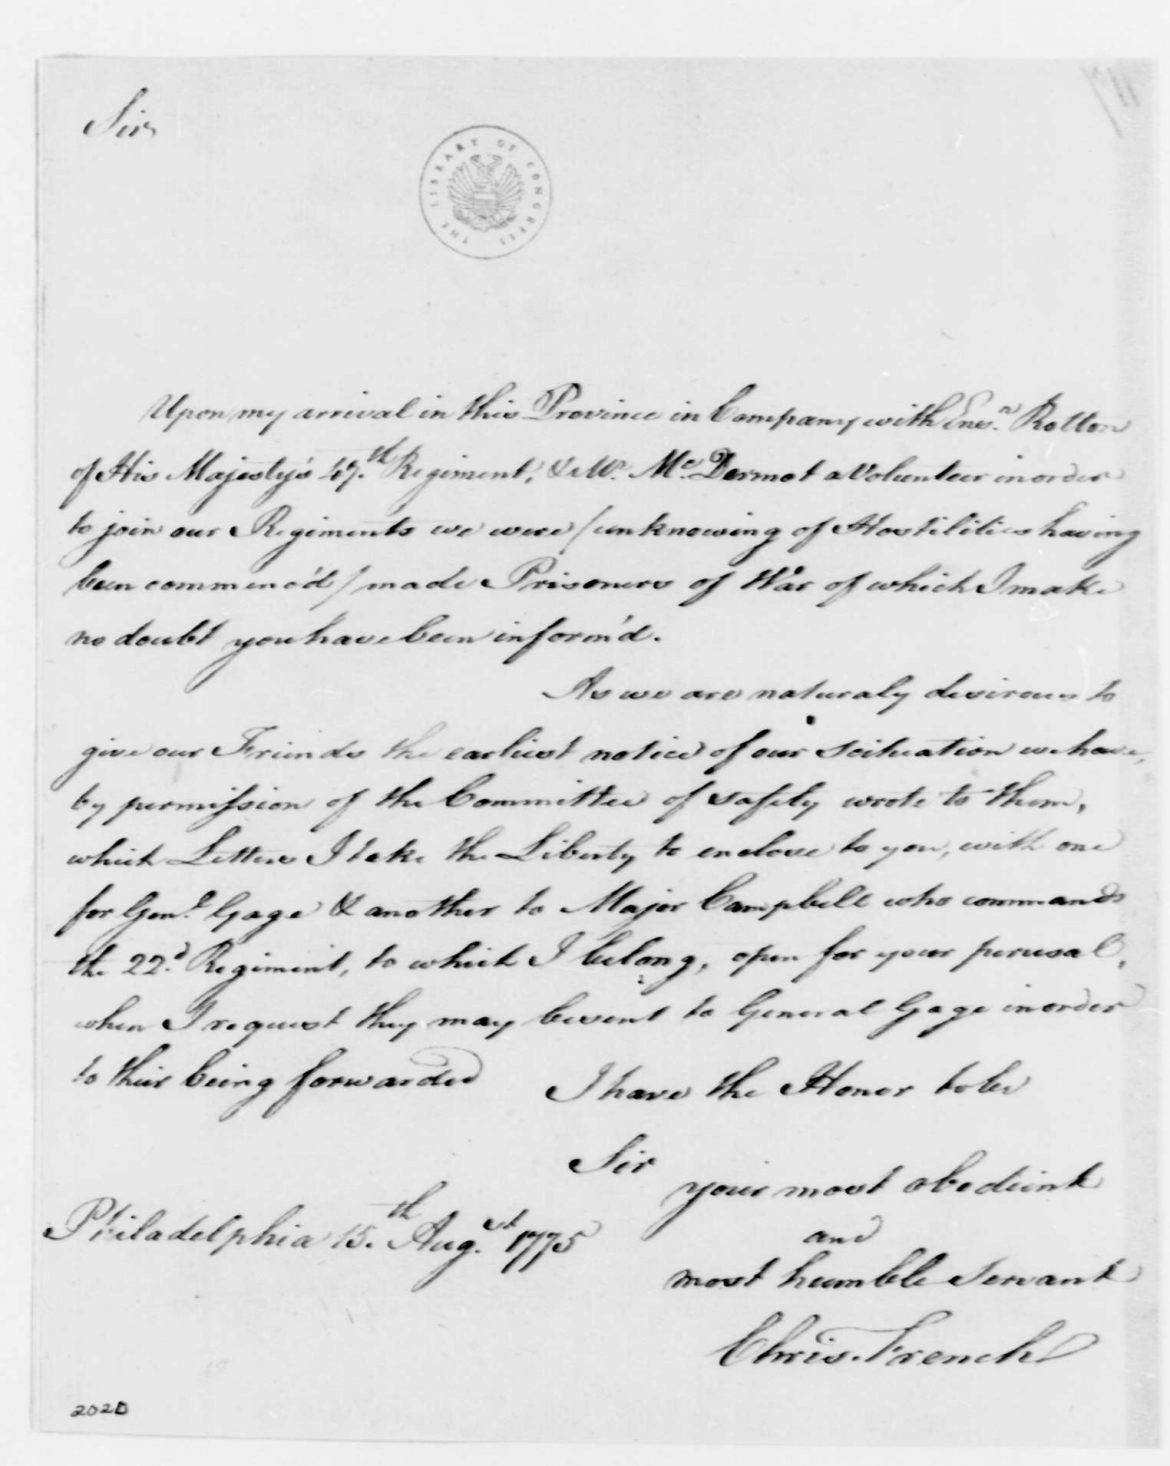 Sir
THE LIBRARY OF CONGRESS
Upon my arrival in this Province in Company with Ensn. Rotton
of His Majesty's 47.th Regiment, & Mr. Mc.Dermot a Volunteer in order
to join our Regiments we were /unknowing of Hostilities having
been commenc'd/ made Prisoners of War of which I make
no doubt you have been inform'd.
As we are naturaly desireous to
give our Friends the earliest notice of our scituation we have,
by permission of the Committee of safety wrote to them,
which Letters I take the Liberty to enclose to you, with one
for Genl. Gage & another to Major Campbell who commands
the 22d. Regiment, to which I belong, open for your perusal,
when I request they may be sent to General Gage in order
to their being forwarded
I have the Honor to be
Sir
your most obedient
Philadelphia 15.th Aug.st 1775
and
most humble Servant
Chris. French
2020